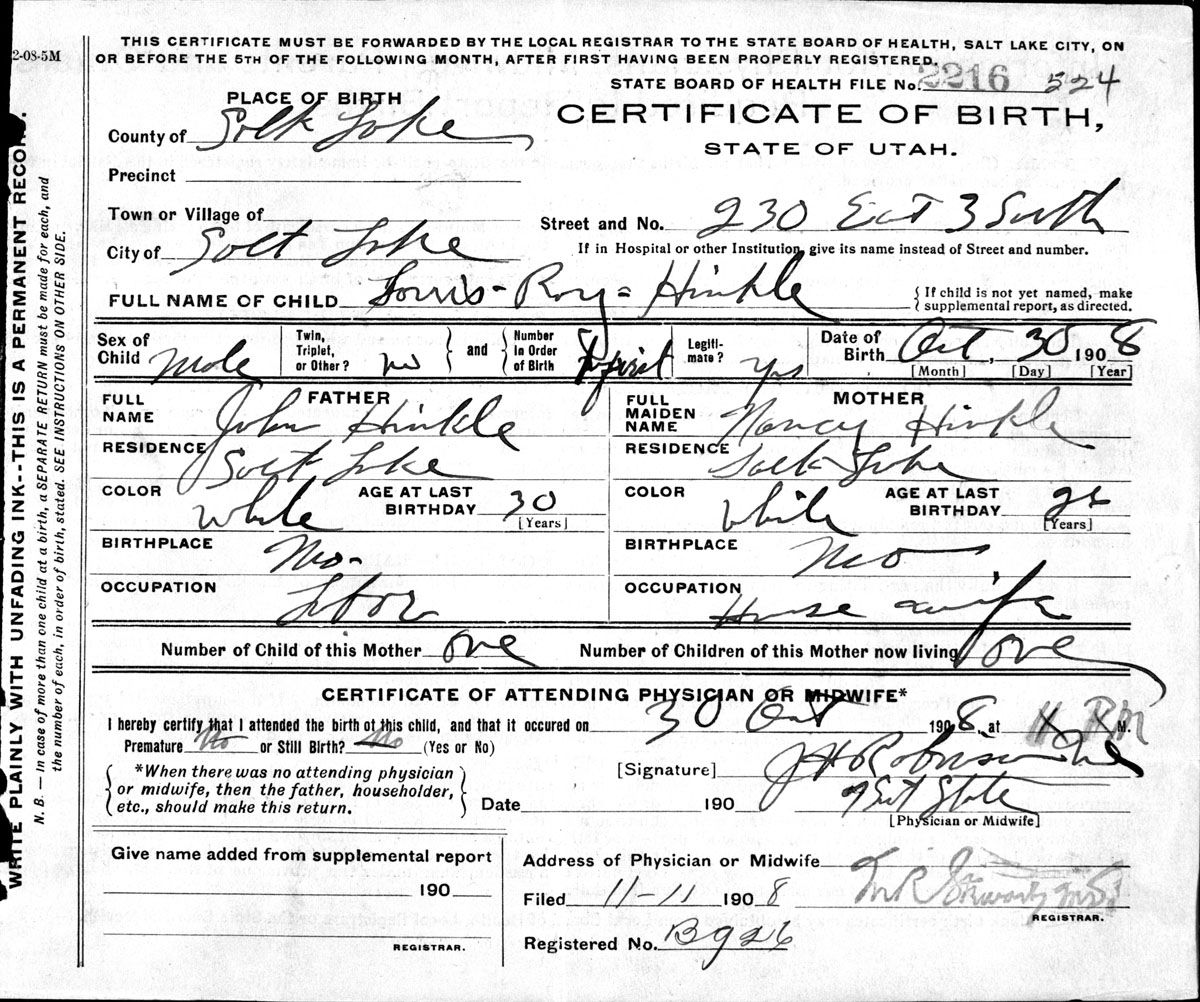 2-08-5M
THIS CERTIFICATE MUST BE FORWARDED BY THE LOCAL REGISTRAR TO THE STATE BOARD OF HEALTH, SALT LAKE CITY, ON
OR BEFORE THE 5TH OF THE FOLLOWING MONTH, AFTER FIRST HAVING BEEN PROPERLY REGISTERED.
STATE BOARD OF HEALTH FILE No. 2216 524
PLACE OF BIRTH
CERTIFICATE OF BIRTH,
STATE OF UTAH.
County of Salt Lake
Precinct
Town or Village of
Street and No. 230 East 3 South
City of Salt Lake
If in Hospital or other Institution, give its name instead of Street and number.
FULL NAME OF CHILD Louis - Roy = Hinkle
{ If child is not yet named, make
supplemental report, as directed.
Sex of Child Male
Twin, Triplet, or Other? no
} and { Number In Order of Birth first
Legitimate? Yes
Date of Birth Oct. 30 1908
[Month] [Day] [Year]
FATHER
FULL NAME John Hinkle
RESIDENCE Salt Lake
COLOR White AGE AT LAST BIRTHDAY 30
[Years]
BIRTHPLACE Mo-
OCCUPATION Labor
MOTHER
FULL MAIDEN NAME Nancy Hinkle
RESIDENCE Salt Lake
COLOR White AGE AT LAST BIRTHDAY
[Years]
BIRTHPLACE Mo
OCCUPATION House wife
Number of Child of this Mother one Number of Children of this Mother now living one
CERTIFICATE OF ATTENDING PHYSICIAN OR MIDWIFE*
I hereby certify that I attended the birth of this child, and that it occured on 30 Oct 1908, at 11 PM M.
Premature No or Still Birth? No (Yes or No)
{ *When there was no attending physician
or midwife, then the father, householder,
etc., should make this return. }
[Signature] J H Robinson
Date 190 State
[Physician or Midwife]
Give name added from supplemental report
190
REGISTRAR.
Address of Physician or Midwife
Filed 11-11 1908
REGISTRAR.
Registered No. B926
WRITE PLAINLY WITH UNFADING INK--THIS IS A PERMANENT RECORD.
N. B. — In case of more than one child at a birth, a SEPARATE RETURN must be made for each, and
the number of each, in order of birth, stated. SEE INSTRUCTIONS ON OTHER SIDE.